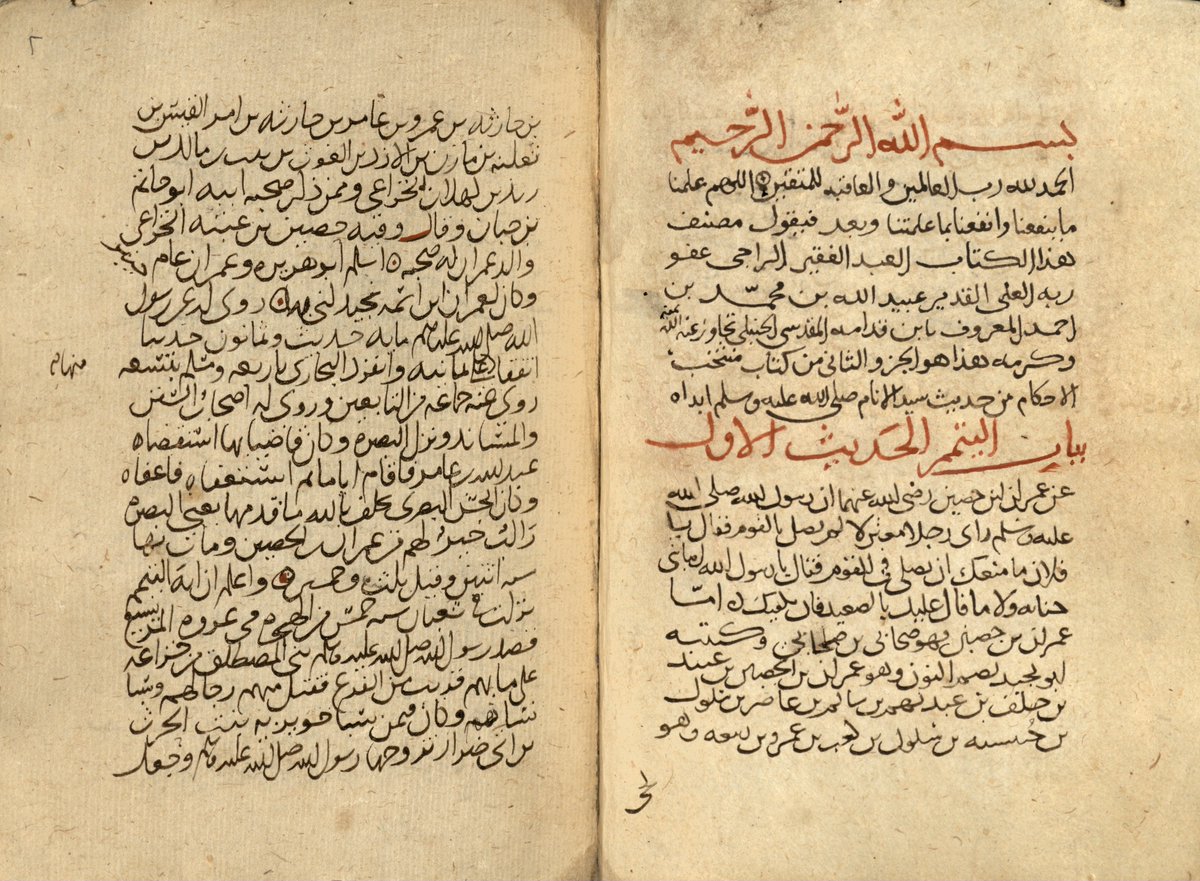 بسم الله الرحمن الرحيم
الحمد لله رب العالمين والعاقبه للمتقين اللهم علمنا
ما ينفعنا وانفعنا بما علمتنا وبعد فيقول مصنف
هذا الكتاب العبد الفقير الراجي عفو
ربه العلي القدير عبيد الله بن محمد بن
احمد المعروف بابن قدامه المقدسي الحنبلي تجاوز الله عنه
وكرمه هذا هو الجزو الثاني من كتاب منتخب
الاحكام من حديث سيد الانام صلى الله عليه وسلم ابداه
بيان التيمم الحديث الاول
عن عمران ابن حصين رضي الله عنهما ان رسول الله صلى الله
عليه وسلم راى رجلا معتزلا لم يصل بالقوم فقال يا
فلان ما منعك ان تصلي في القوم فقال يا رسول الله اصابتني
جنابه ولا ما قال عليك بالصعيد فانه يكفيك امتا
عمران بن حصين فهو صحابي بن صحابي وكنيته
ابو نجيد بضم النون وهو عمران بن الحصين بن عبيد
بن خلف بن عبد نهم بن سالم بن غاضر بن سلول
بن حبشيه بن سلول بن كعب بن عمرو بن ربيعه وهو
بن حارثه بن عمرو بن عامر بن حارثه بن امر القيس بن
ثعلبه بن مازن بن الازد بن الغوث بن نبت بن مالك بن
زيد بن كهلان الخزاعي وممن ذكر صحبه ابيه ابو حاتم
بن حبان وقال وفيه حصين بن عتبه الخزاعي
والد عمران له صحبه اسلم ابو هريره وعمران عام
وكان لعمران ابن اسمه نجيد روى له عن رسول
الله صلى الله عليه وسلم مايه حديث وثمانون حديثا
اتفقا على ثمانيه وانفرد البخاري باربعه ومسلم بتسعه
منها
روى عنه جماعه من التابعين وروى له اصحاب السنن
والمساند ونزل البصره وكان قاضيا بها استقضاه
عبد الله بن عامر فاقام اياما ثم استعفاه فاعفاه
وكان الحسن البصري يحلف بالله ما قدمها يعني البصره
راكب خير لهم من عمران بن الحصين ومات بها
سنه اثنتين وقيل ثلث وخمسين واعلم ان ايه التيمم
نزلت في شعبان سنه خمس من الهجره في غزوه المريسيع
قصد رسول الله صلى الله عليه وسلم بني المصطلق من خزاعه
على ما بهم قريب من الفرع فقتل منهم رجالهم وسبا
نساهم وكان فيمن سبا جويريه بنت الحرث
بن ابي ضرار تزوجها رسول الله صلى الله عليه وسلم وجعل